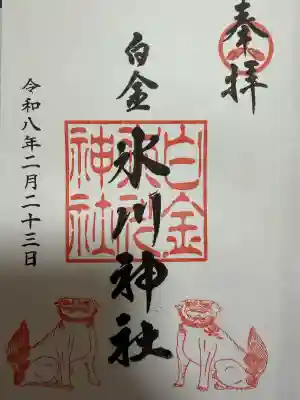 奉拝
白金
氷川神社
白金
氷川
神社
令和八年二月二十三日